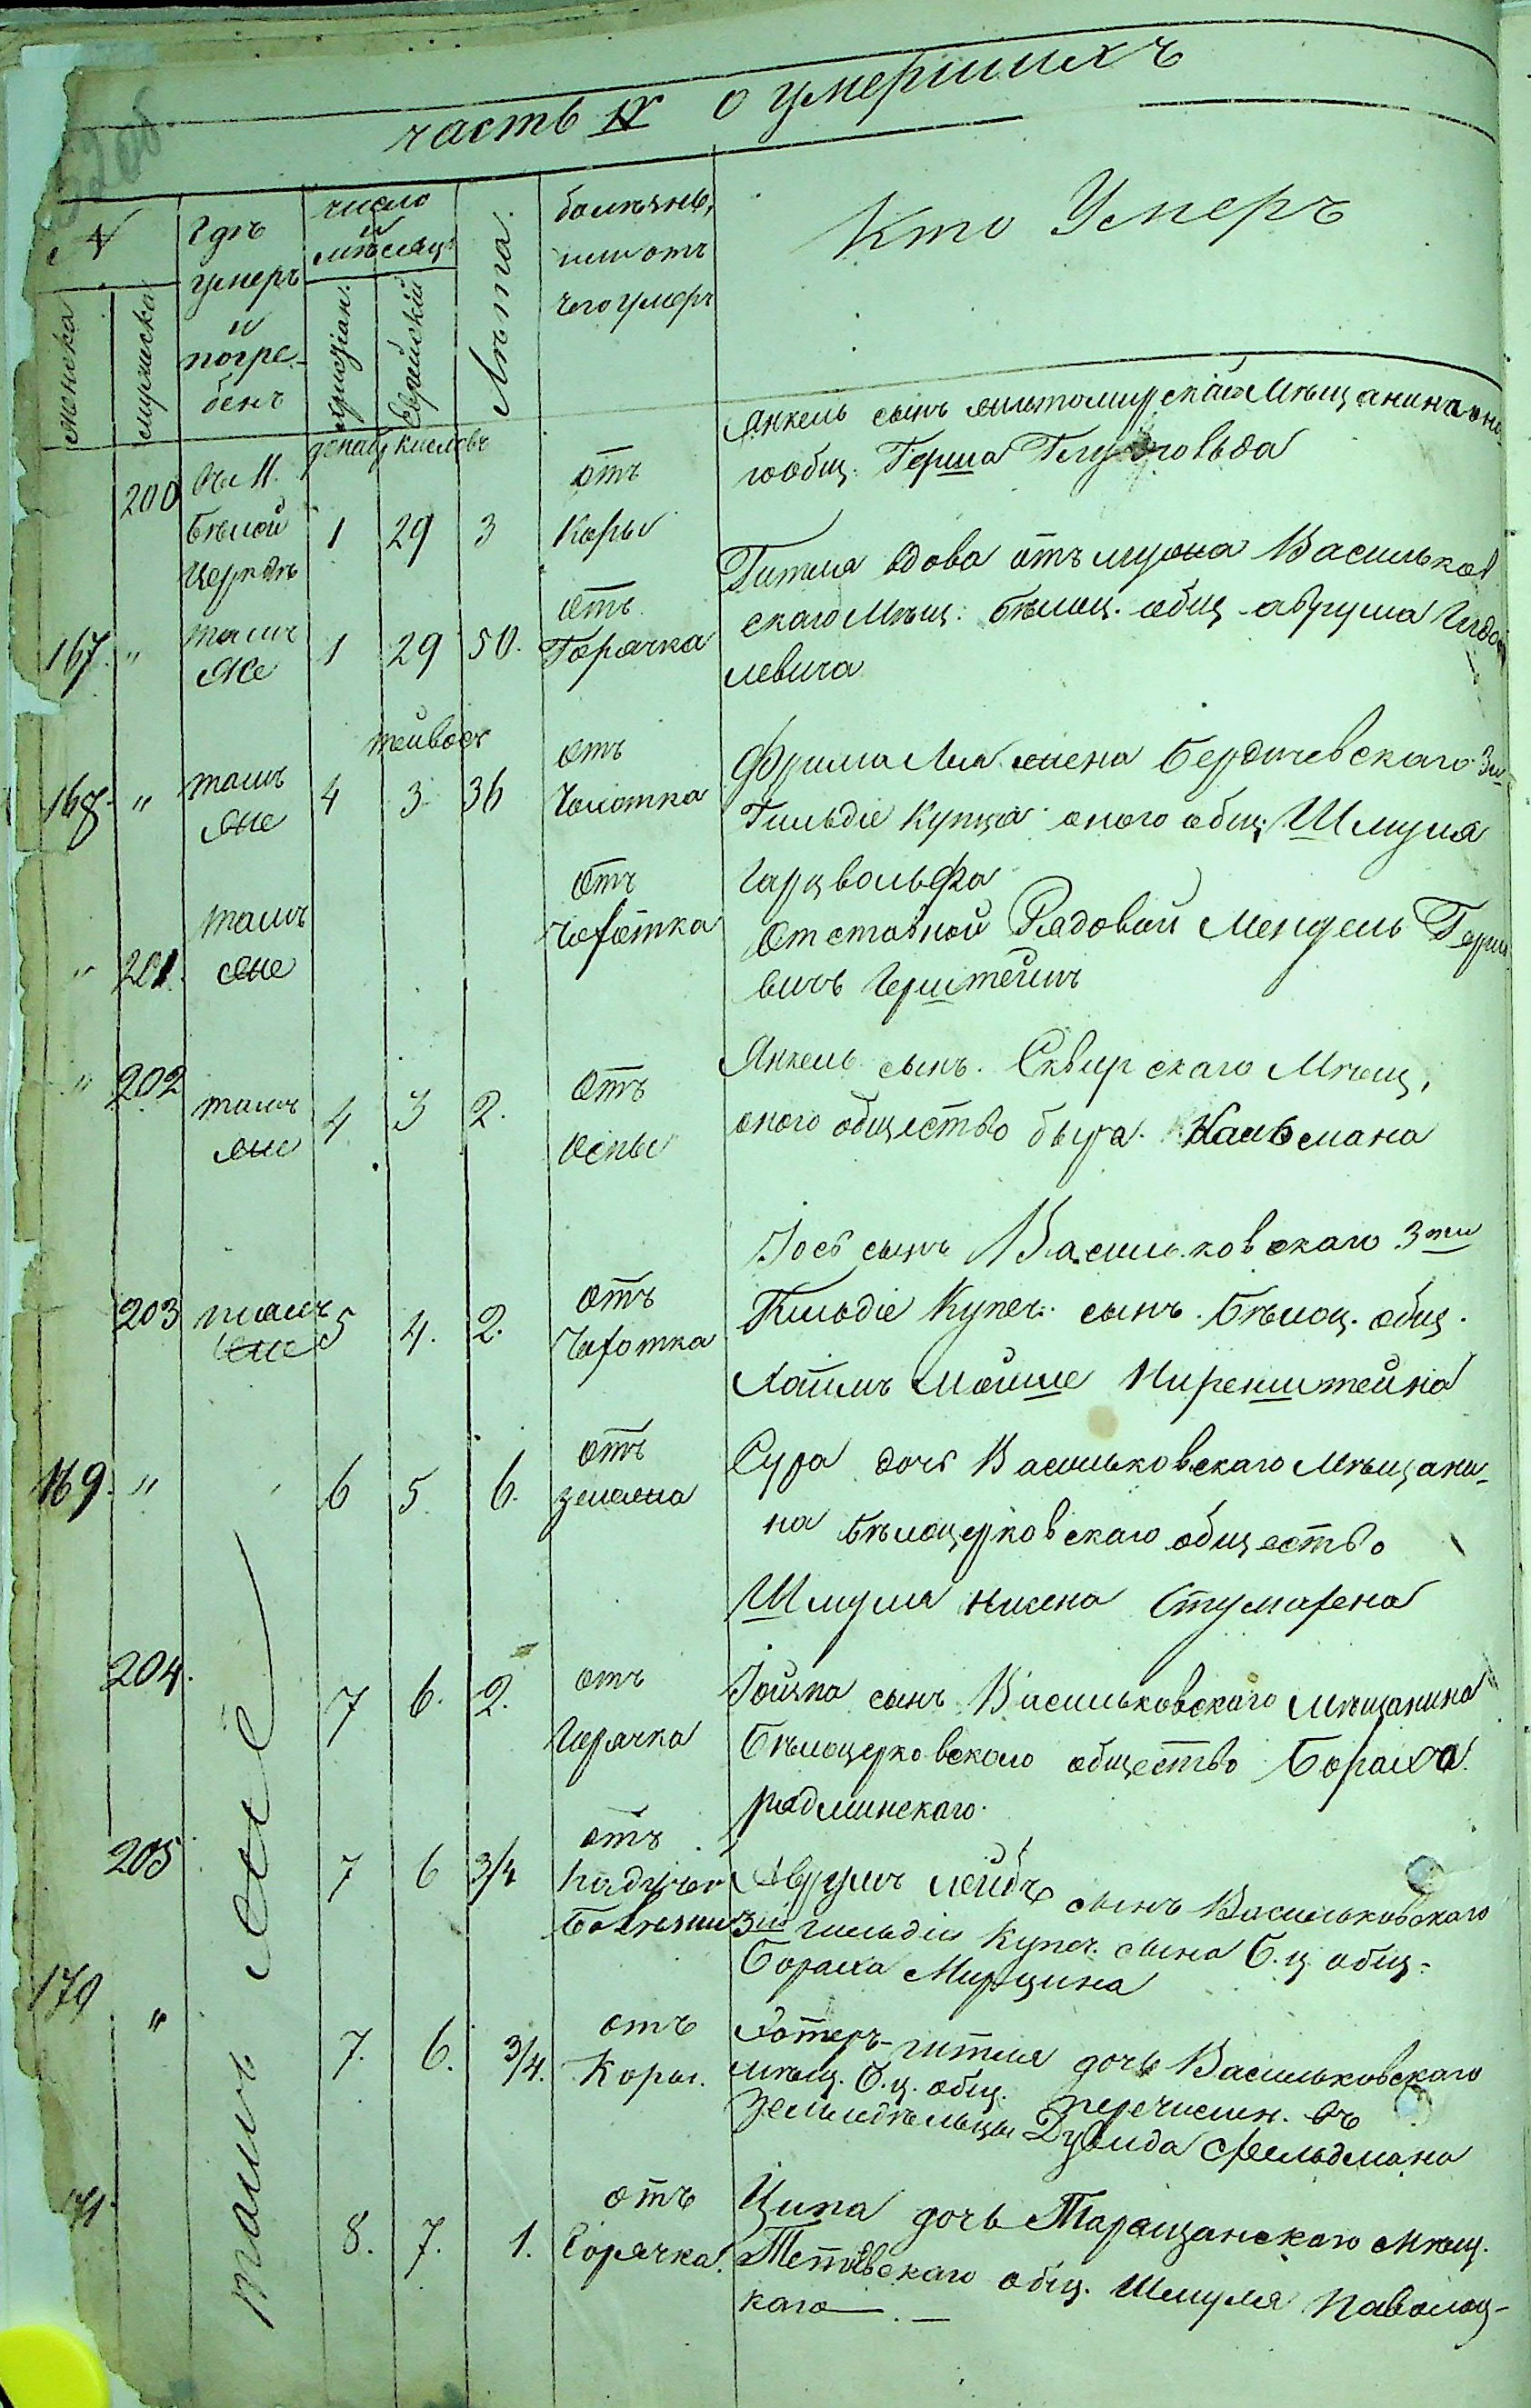 часть IV о умершихъ
№
Гдѣ умеръ и погребенъ
число и мѣсяцъ
Лѣта
болѣзнь, или отъ чего умеръ
Кто Умеръ
женска
мужеска
христіан.
Еврейскій
декаб. кислевъ
200 въ М. Бѣлой Церквѣ 1 29 3 отъ Коры
Янкель сынъ Житомирскаго Мѣщанина оно-
го общ. Герша
167. " тамъ же 1 29 50. отъ Горячка
Гитля вдова отъ мужа Васильков
скаго Мѣщ. бѣлоц. общ. Аврума
левича
тейвосъ
168. " тамъ же 4 3 36 отъ Чахотка
Фрима Лия жена Бердичевскаго 3й
Гильдіе Купца оного общ. Шмуля
Гарцвольфа
" 201. тамъ же отъ Чахотка
Отставной Рядовой Мендель Герш
вичъ Герштейнъ
" 202 тамъ же 4 3 2. отъ Оспы
Янкель сынъ Сквирскаго Мѣщ.
оного общество Кальмана
203 тамъ же 5 4. 2. отъ Чахотка
Іось сынъ Васильковскаго 3ти
Гильдіе Купеч. сынъ Бѣлоц. общ.
Хаимъ Мойше Миренштейна
169. " 6 5. 6.
Сура дочь Васильковскаго Мѣщани-
на Бѣлоцерковскаго общество
Шмуля
204. 7 6. 2. отъ Горячка
Іойна сынъ Васильковскаго мѣщанина
Бѣлоцерковского общество Бораха
радминскаго
тамъ же
205 7 6 3/4 отъ Падучей Болѣзни
Аврумъ Лейбъ сынъ Васильковскаго
3й гильдіи Купеч. сына Б. ц. общ.
Бораха
170 " 7. 6. 3/4. отъ Коры.
Эстеръ-гитля дочь Васильковскаго
мѣщ. Б. ц. общ. перечислен. въ
Земледѣльцы Дувида Фельдмана
171. 8. 7. 1. отъ Горячка.
Ципа дочь Таращанскаго мѣщ.
Тетіевскаго общ. Шмуля Паволоц-
каго